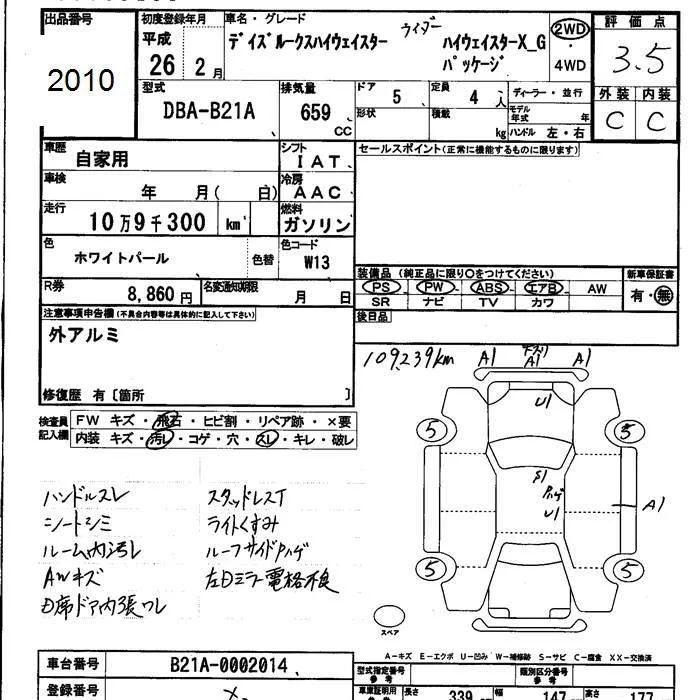 出品番号
2010
初度登録年月
平成
26 2 月
車名・グレード
デイズルークスハイウェイスター
ライダー
ハイウェイスターX_G
パッケージ
2WD
・
4WD
評価点
3.5
外装 内装
C C
型式
DBA-B21A
排気量
659
CC
ドア
5
定員
4 人
形状
積載
kg
ディーラー・並行
モデル年式 年
ハンドル 左・右
車歴
自家用
シフト
IAT
車検
年 月( 日)
冷房
AAC
走行
10万9千300 km
燃料
ガソリン
色
ホワイトパール
色替
色コード
W13
R券
8,860 円
名変通知期限
月 日
セールスポイント(正常に機能するものに限ります)
装備品(純正品に限り○をつけてください)
新車保証書
PS PW ABS エアB AW
SR ナビ TV カワ
有・無
後日品
注意事項申告欄(不具合内容等は具体的に記入して下さい)
外アルミ
修復歴 有〔箇所 〕
検査員
記入欄
FW キズ・飛石・ヒビ割・リペア跡・×要
内装 キズ・汚レ・コゲ・穴・スレ・キレ・破レ
109,239km
A1 A1 A1
U1
S1
Pハゲ
U1
A1
5 5
5 5
スペア
ハンドルスレ
シートシミ
ルーム内汚レ
AWキズ
D席ドア内張スレ
スタッドレスT
ライトくすみ
ルーフサイドPハゲ
左Dミラー電格不良
A-キズ E-エクボ U-凹み W-補修跡 S-サビ C-腐食 XX-交換済
車台番号
B21A-0002014
登録番号
型式指定番号
参考
類別区分番号
参考
車庫証明用
参考
長さ
339
幅
147
高さ
177